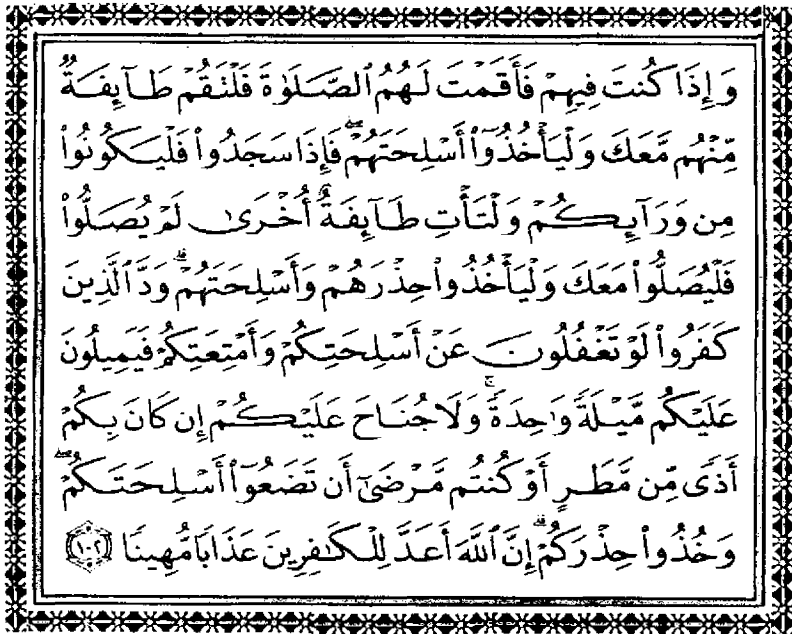 وَإِذَا كُنتَ فِيهِمْ فَأَقَمْتَ لَهُمُ ٱلصَّلَوٰةَ فَلْتَقُمْ طَآئِفَةٌ
مِّنْهُم مَّعَكَ وَلْيَأْخُذُوٓا۟ أَسْلِحَتَهُمْۖ فَإِذَا سَجَدُوا۟ فَلْيَكُونُوا۟
مِن وَرَآئِكُمْ وَلْتَأْتِ طَآئِفَةٌ أُخْرَىٰ لَمْ يُصَلُّوا۟
فَلْيُصَلُّوا۟ مَعَكَ وَلْيَأْخُذُوا۟ حِذْرَهُمْ وَأَسْلِحَتَهُمْۗ وَدَّ ٱلَّذِينَ
كَفَرُوا۟ لَوْ تَغْفُلُونَ عَنْ أَسْلِحَتِكُمْ وَأَمْتِعَتِكُمْ فَيَمِيلُونَ
عَلَيْكُم مَّيْلَةً وَٰحِدَةًۚ وَلَا جُنَاحَ عَلَيْكُمْ إِن كَانَ بِكُمْ
أَذًى مِّن مَّطَرٍ أَوْ كُنتُم مَّرْضَىٰٓ أَن تَضَعُوٓا۟ أَسْلِحَتَكُمْۖ
وَخُذُوا۟ حِذْرَكُمْۗ إِنَّ ٱللَّهَ أَعَدَّ لِلْكَٰفِرِينَ عَذَابًا مُّهِينًا ١٠٢